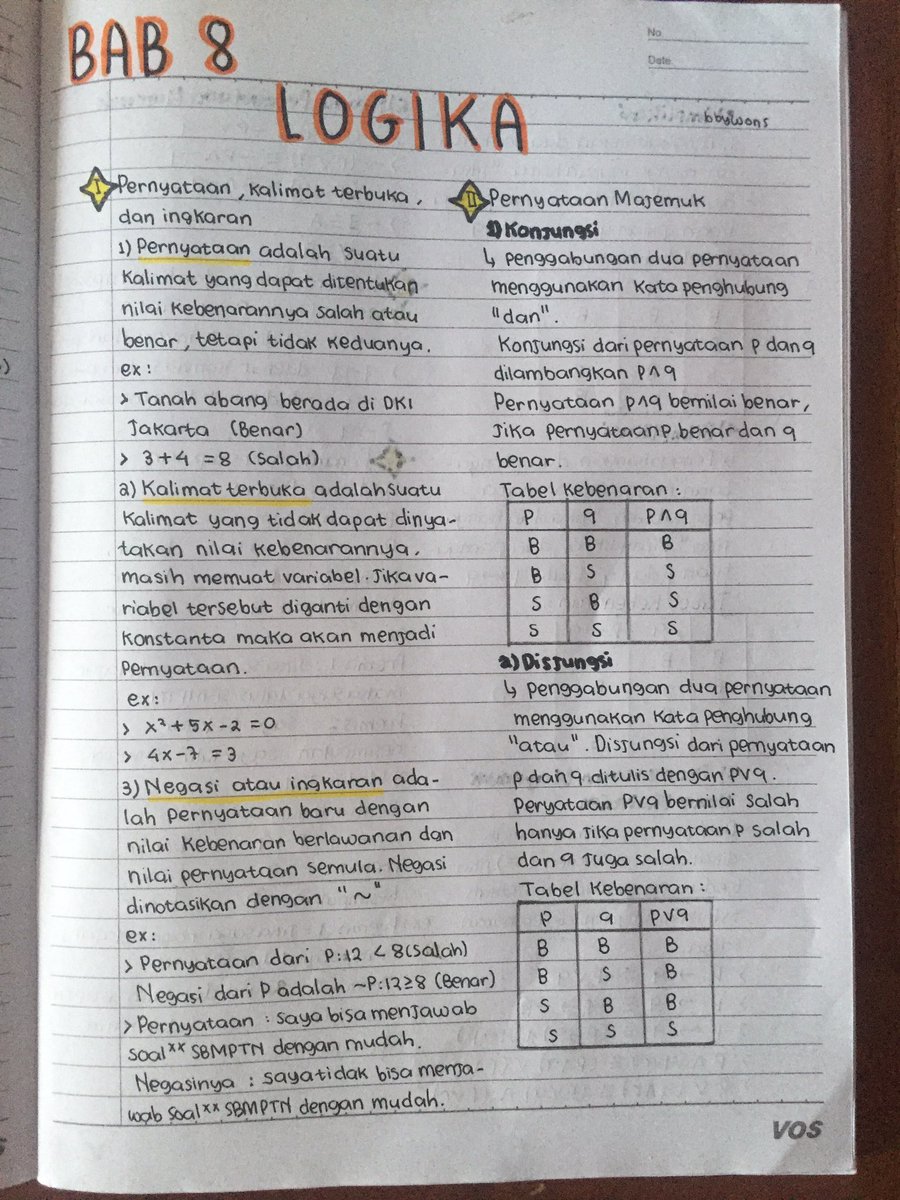 BAB 8
LOGIKA
No
Date
bbywons
I Pernyataan, Kalimat terbuka,
dan ingkaran
1) Pernyataan adalah suatu
Kalimat yang dapat ditentukan
nilai kebenarannya salah atau
benar, tetapi tidak keduanya.
ex:
> Tanah abang berada di DKI
Jakarta (Benar)
> 3+4 = 8 (Salah)
2) Kalimat terbuka adalah suatu
Kalimat yang tidak dapat dinya-
takan nilai kebenarannya.
masih memuat variabel. Jika va-
riabel tersebut diganti dengan
Konstanta maka akan menjadi
Pernyataan.
ex:
> x²+5x-2=0
> 4x-7 = 3
3) Negasi atau ingkaran ada-
lah pernyataan baru dengan
nilai kebenaran berlawanan dan
nilai pernyataan semula. Negasi
dinotasikan dengan "~"
ex:
> Pernyataan dari P:12 < 8 (Salah)
Negasi dari P adalah ~P:12≥8 (Benar)
> Pernyataan : saya bisa menjawab
soal** SBMPTN dengan mudah.
Negasinya : saya tidak bisa menja-
wab soal** SBMPTN dengan mudah.
II Pernyataan Majemuk
1) Konjungsi
↳ Penggabungan dua pernyataan
menggunakan Kata penghubung
"dan".
Konjungsi dari pernyataan p dan q
dilambangkan p∧q
Pernyataan p∧q bernilai benar,
Jika pernyataan p benar dan q
benar.
Tabel Kebenaran :
p q p∧q
B B B
B S S
S B S
S S S
2) Disjungsi
↳ Penggabungan dua pernyataan
menggunakan Kata penghubung
"atau". Disjungsi dari pernyataan
p dan q ditulis dengan p∨q.
Peryataan p∨q bernilai salah
hanya Jika pernyataan p salah
dan q Juga salah.
Tabel Kebenaran :
p q p∨q
B B B
B S B
S B B
S S S
VOS